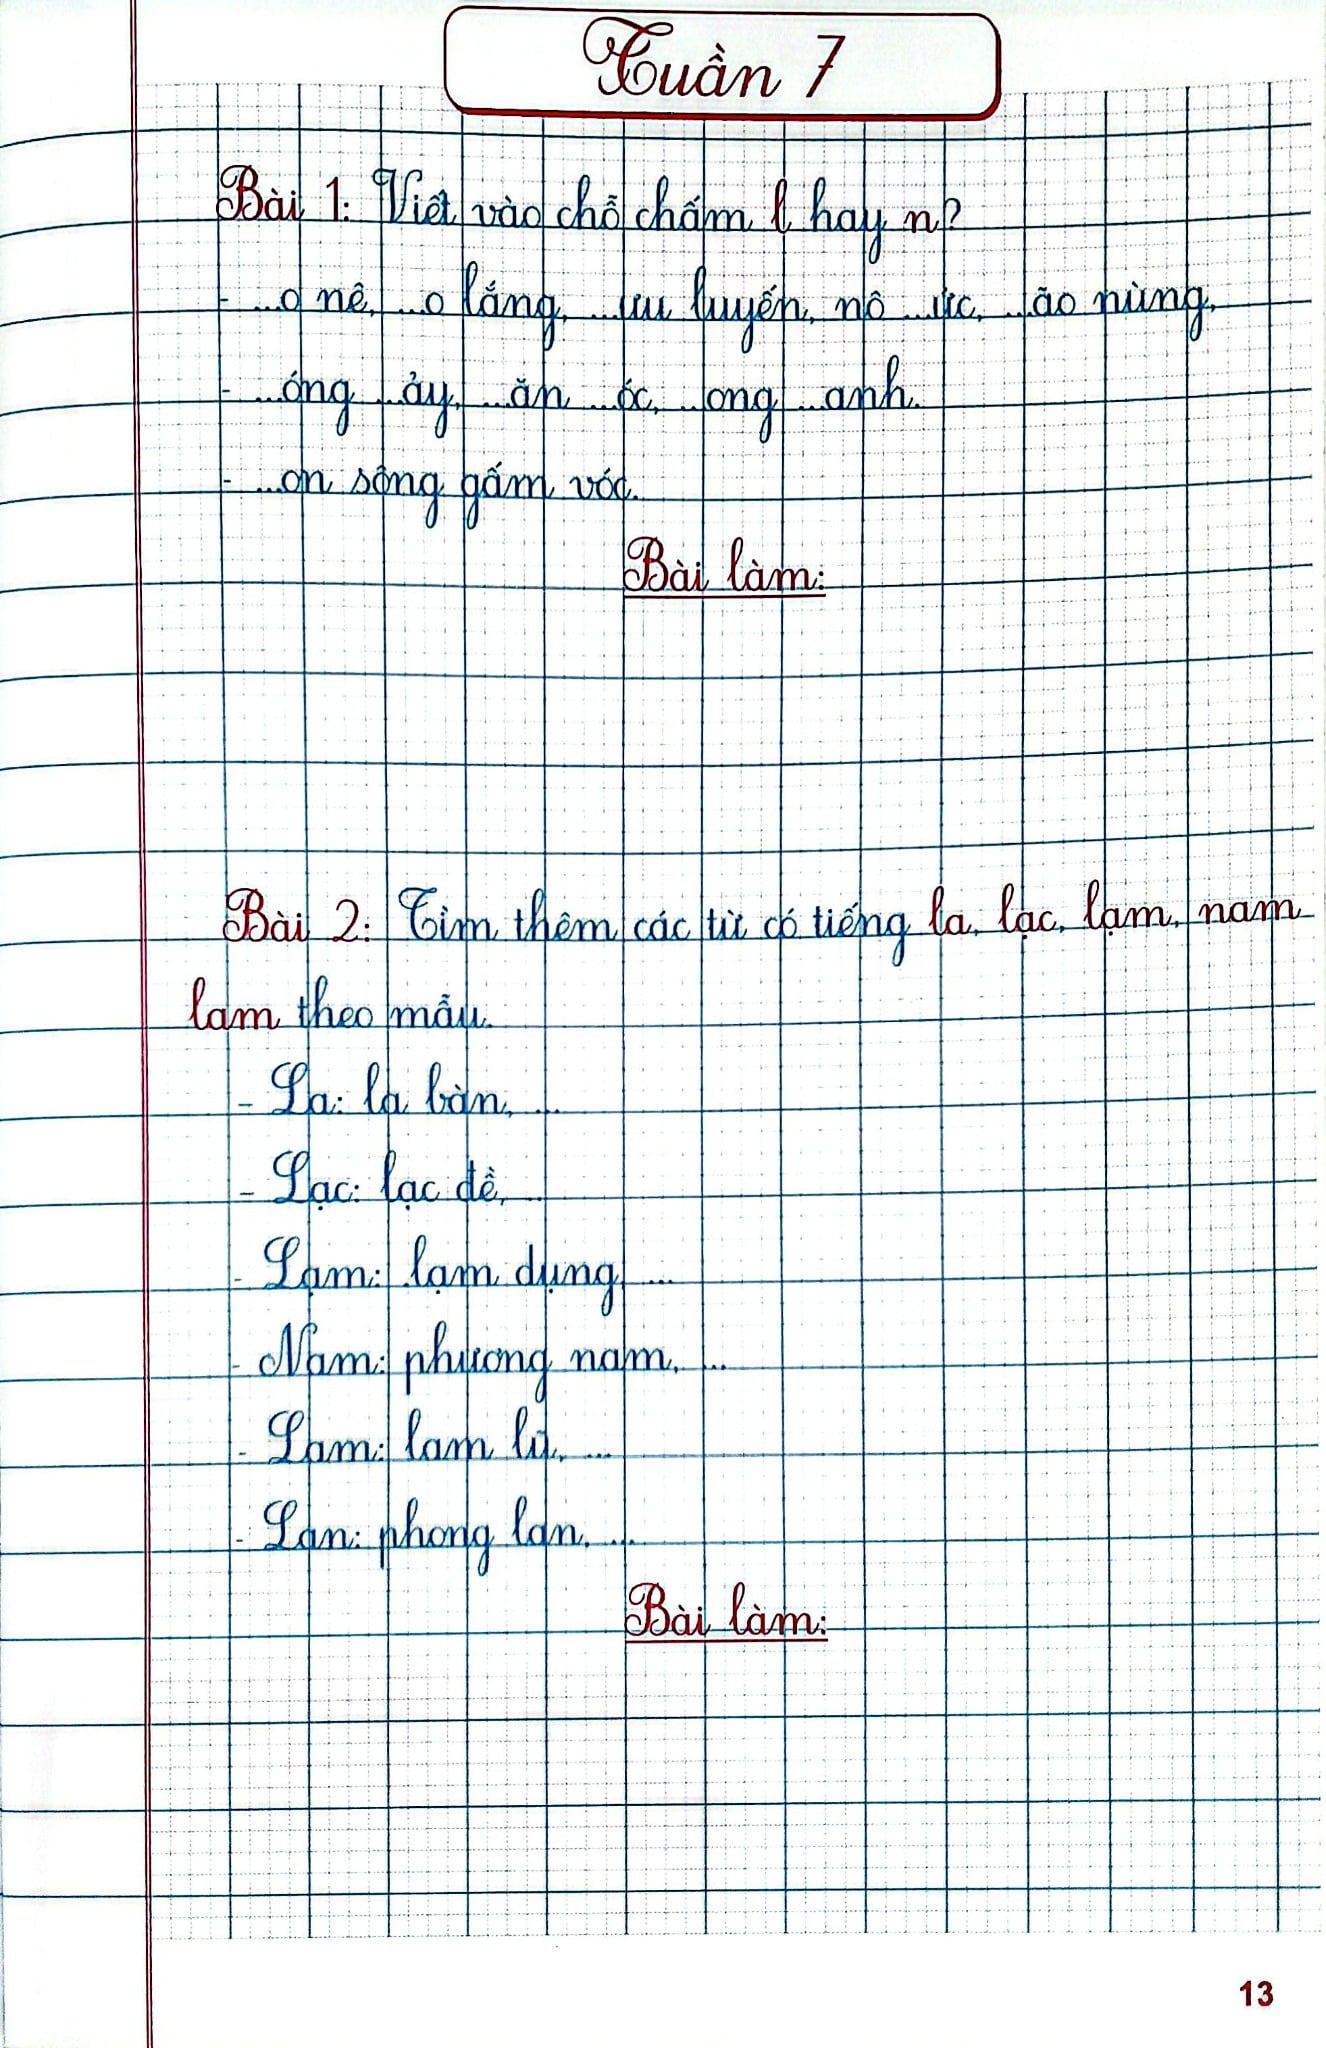 Tuần 7
Bài 1: Viết vào chỗ chấm l hay n?
- ...o nê, ...o lắng, ...ưu luyến, nô ...ức, ...ão nùng,
- ...óng ...ảy, ...ăn ...óc, ...ong ...anh.
- ...on sông gấm vóc.
Bài làm:
Bài 2: Tìm thêm các từ có tiếng la, lạc, lạm, nam
lam theo mẫu.
- La: la bàn, ...
- Lạc: lạc đề, ...
- Lạm: lạm dụng, ...
- Nam: phương nam, ...
- Lam: lam lũ, ...
- Lan: phong lan, ...
Bài làm:
13